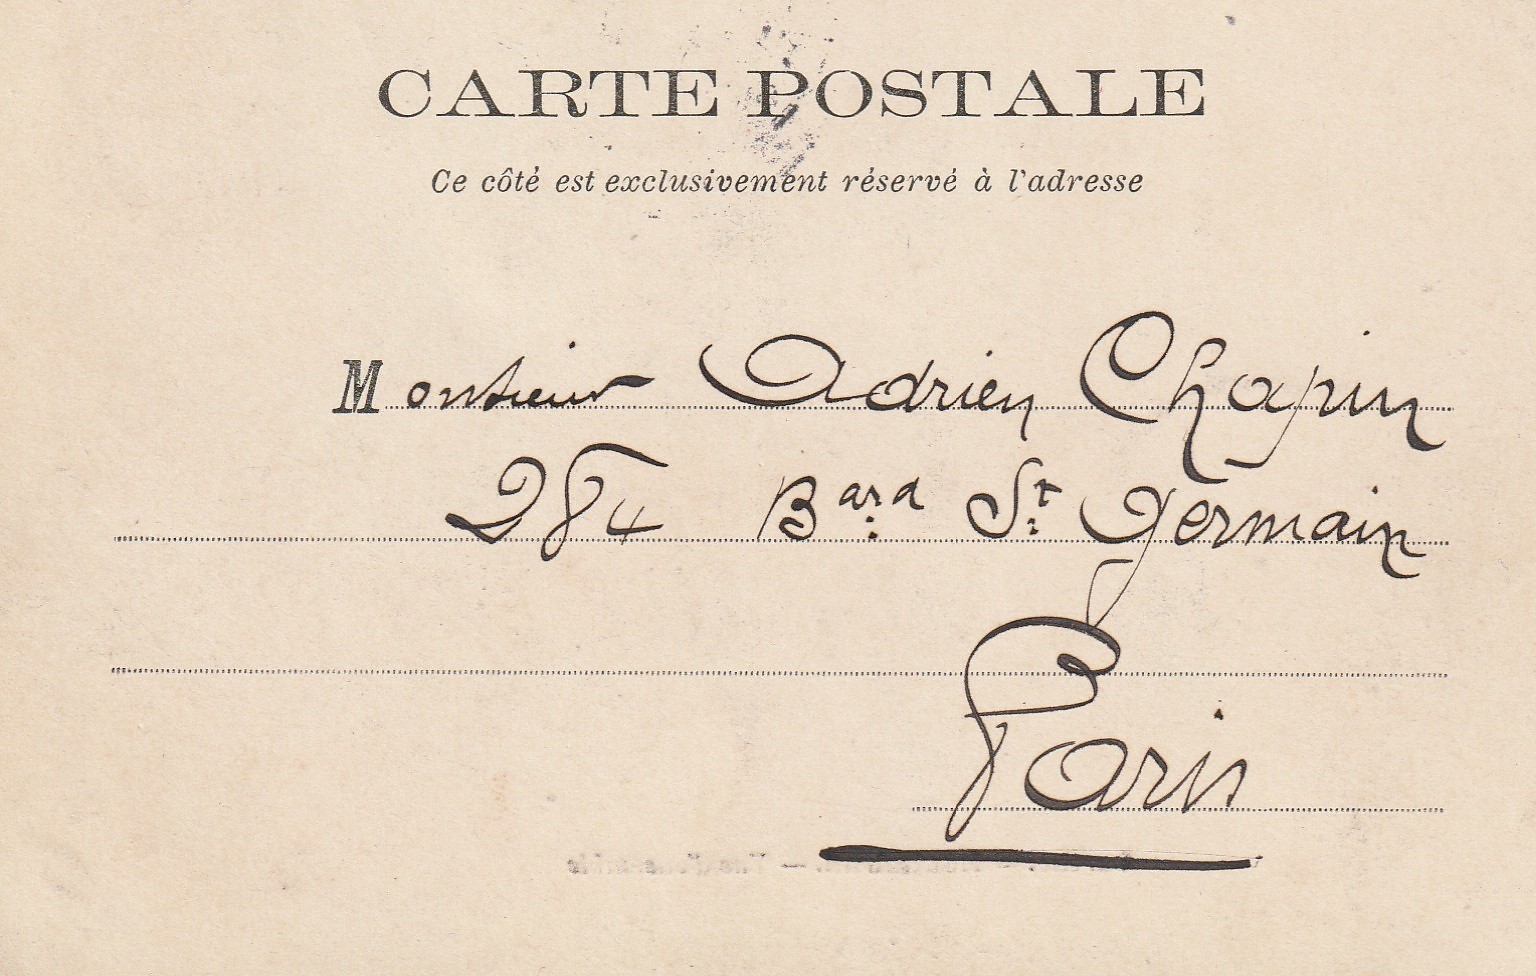 CARTE POSTALE
Ce côté est exclusivement réservé à l'adresse
Monsieur Adrien Chapin
284 Bard St Germain
Paris